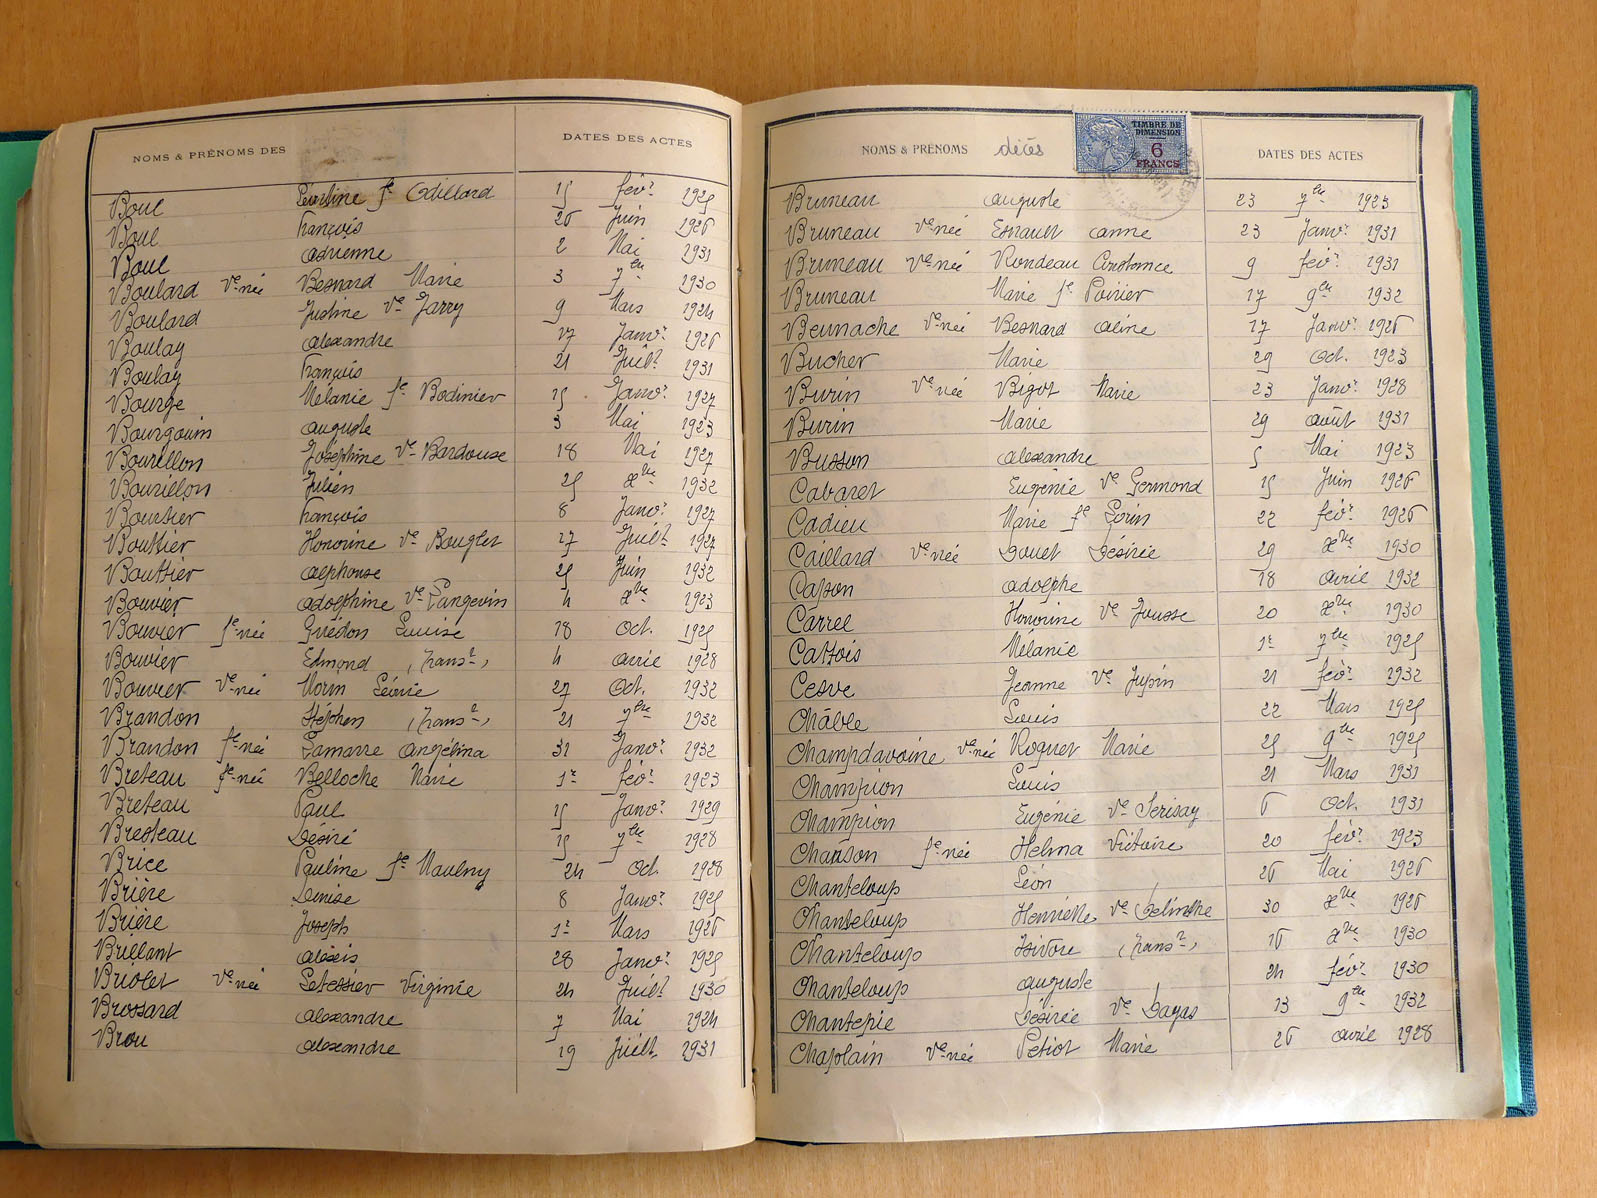 NOMS & PRÉNOMS DES DATES DES ACTES
Boul Léontine fe Odillard 15 févr 1925
Boul François 26 Juin 1926
Boul Adrienne 2 Mai 1931
Boulard Ve née Besnard Marie 3 7bre 1930
Boulard Justine Ve Jarry 9 Mars 1924
Boulay Alexandre 27 Janvr 1926
Boulay François 21 Juillt 1931
Bourge Mélanie fe Bodinier 15 Janvr 1927
Bourgouin Auguste 3 Mai 1923
Bourillon Joséphine Ve Bardouse 18 Mai 1927
Bourillon Julien 25 Xbre 1932
Boursier François 8 Janvr 1927
Bouttier Honorine Ve Bouglet 27 Juillt 1927
Bouttier Alphonse 25 Juin 1932
Bouvier Adolphine Ve Langevin 4 Xbre 1923
Bouvier fe née Guédon Louise 18 Oct. 1925
Bouvier Edmond (transn) 4 Avril 1928
Bouvier Ve née Morin Léonie 27 Oct. 1932
Brandon Stéphen (transn) 21 7bre 1932
Brandon fe née Lamarre Angélina 31 Janvr 1932
Breteau fe née Belloche Marie 1r févr 1923
Breteau Paul 15 Janvr 1929
Bresteau Désiré 15 7bre 1928
Brice Pauline fe Maulny 24 Oct. 1928
Brière Denise 8 Janvr 1925
Brière Joseph 1r Mars 1926
Brillant Alexis 28 Janvr 1925
Briolet Ve née Letessier Virginie 24 Juillt 1930
Brossard Alexandre 7 Mai 1924
Brou Alexandre 19 Juillt 1931
NOMS & PRÉNOMS décès DATES DES ACTES
TIMBRE DE
DIMENSION
6
FRANCS
Bruneau Auguste 23 7bre 1923
Bruneau Ve née Esnault Anne 23 Janvr 1931
Bruneau Ve née Rondeau Constance 9 févr 1931
Bruneau Marie fe Poirier 17 9bre 1932
Beunache Ve née Besnard Aline 17 Janvr 1926
Bucher Marie 29 Oct. 1923
Burin Ve née Bigot Marie 23 Janvr 1928
Burin Marie 29 Août 1931
Busson Alexandre 5 Mai 1923
Cabaret Eugénie Ve Germond 15 Juin 1926
Cadieu Marie fe Lorin 22 févr 1926
Caillard Ve née Douet Désirée 29 Xbre 1930
Capon Adolphe 18 Avril 1932
Carrel Honorine Ve Jousse 20 Xbre 1930
Cattois Mélanie 1r 7bre 1925
Cesve Jeanne Ve Jupin 21 févr 1932
Châble Louis 22 Mars 1925
Champdavoine Ve née Roguet Marie 25 9bre 1925
Champion Louis 21 Mars 1931
Champion Eugénie Ve Serisay 6 Oct. 1931
Chanson fe née Helma Victoire 20 févr 1923
Chanteloup Léon 26 Mai 1926
Chanteloup Henriette Ve Delinthe 30 Xbre 1926
Chanteloup Isidore (transn) 16 Xbre 1930
Chanteloup Auguste 24 févr 1930
Chantepie Désirée Ve Dagas 13 9bre 1932
Chaplain Ve née Petiot Marie 26 Avril 1928